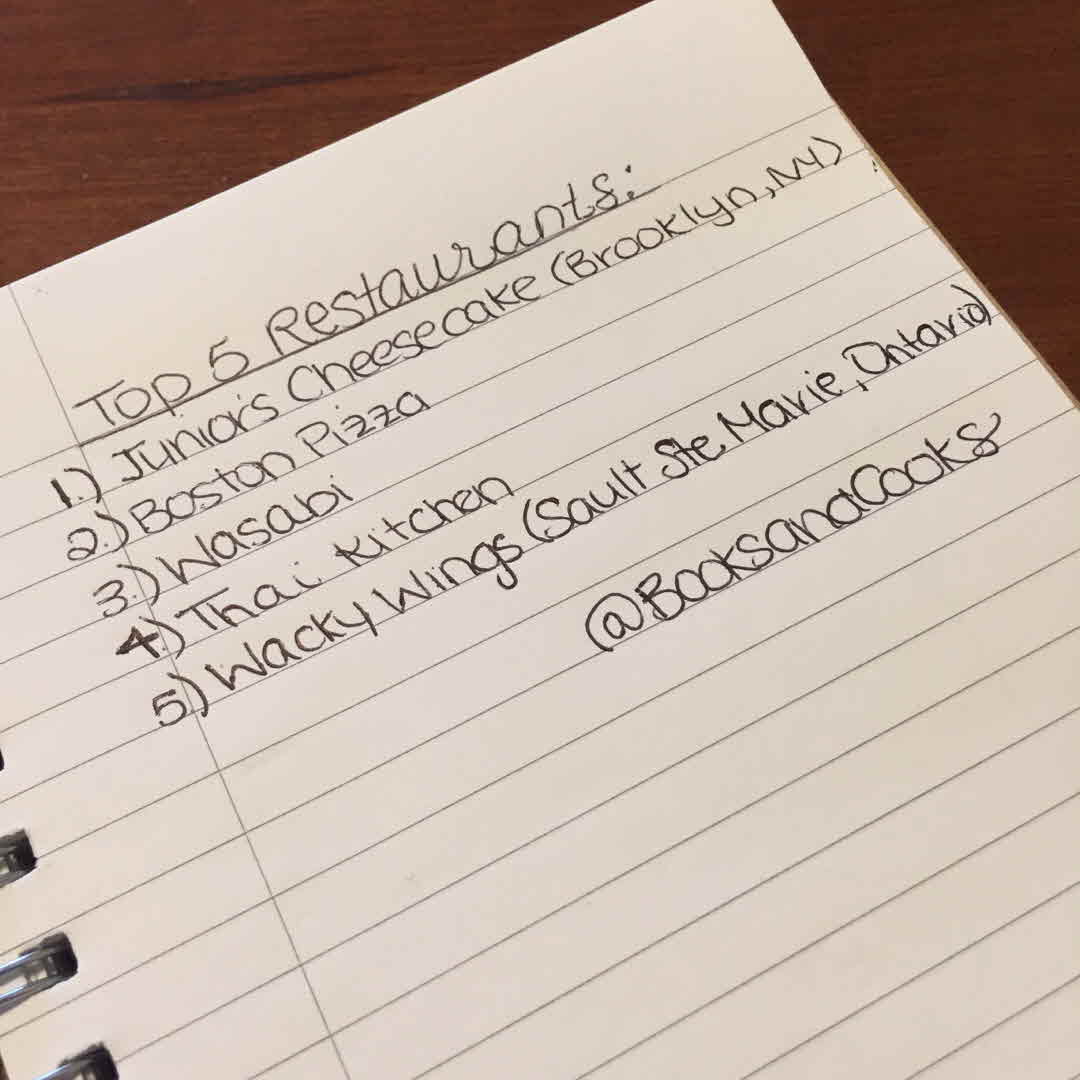 Top 5 Restaurants:
1.) Junior's Cheesecake (Brooklyn, NY)
2.) Boston Pizza
3.) Wasabi
4.) Thai Kitchen
5.) Wacky Wings (Sault Ste. Marie, Ontario)
@BooksandCooks